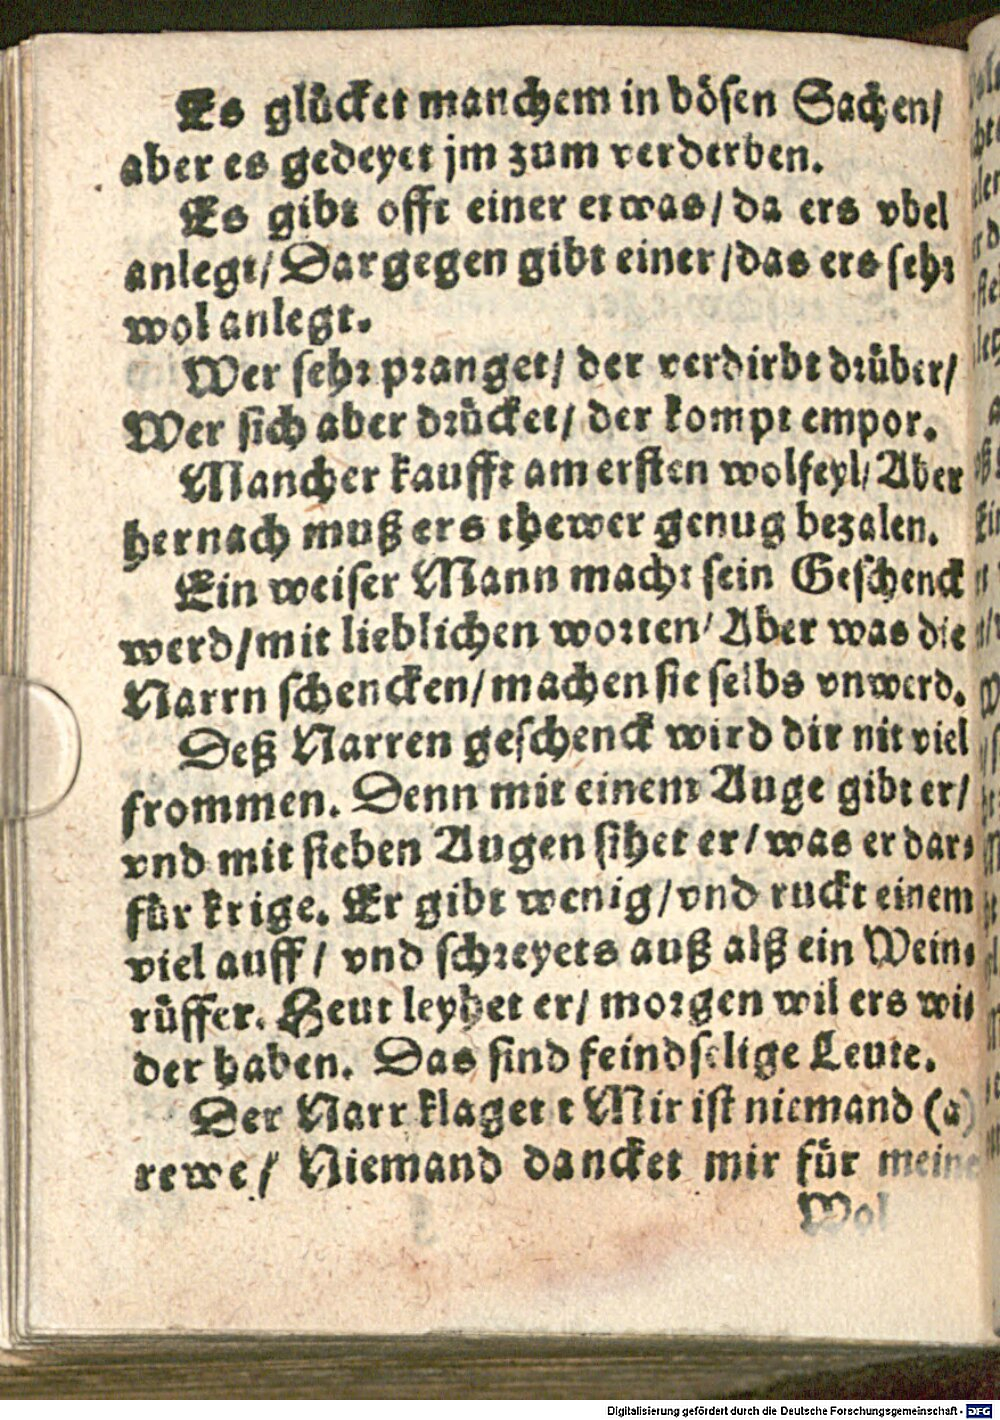 Es glücket manchem in bösen Sachen/
aber es gedeyet jm zum verderben.
Es gibt offt einer etwas/ da ers vbel
anlegt/ Dargegen gibt einer/ das ers sehr
wol anlegt.
Wer sehr pranget/ der verdirbt drüber/
Wer sich aber drücket/ der kompt empor.
Mancher kaufft am ersten wolfeyl/ Aber
hernach muß ers thewer genug bezalen.
Ein weiser Mann macht sein Geschenck
werd/ mit lieblichen worten/ Aber was die
Narrn schencken/ machen sie selbs vnwerd.
Deß Narren geschenck wird dir nit viel
frommen. Denn mit einem Auge gibt er/
vnd mit sieben Augen sihet er/ was er dar-
für krige. Er gibt wenig/ vnd ruckt einem
viel auff/ vnd schreyets auß alß ein Wein-
rüffer. Heut leyhet er/ morgen wil ers wi-
der haben. Das sind feindselige Leute.
Der Narr klaget t Mir ist niemand (a)
rewe/ Niemand dancket mir für meine
Wol
Digitalisierung gefördert durch die Deutsche Forschungsgemeinschaft - DFG